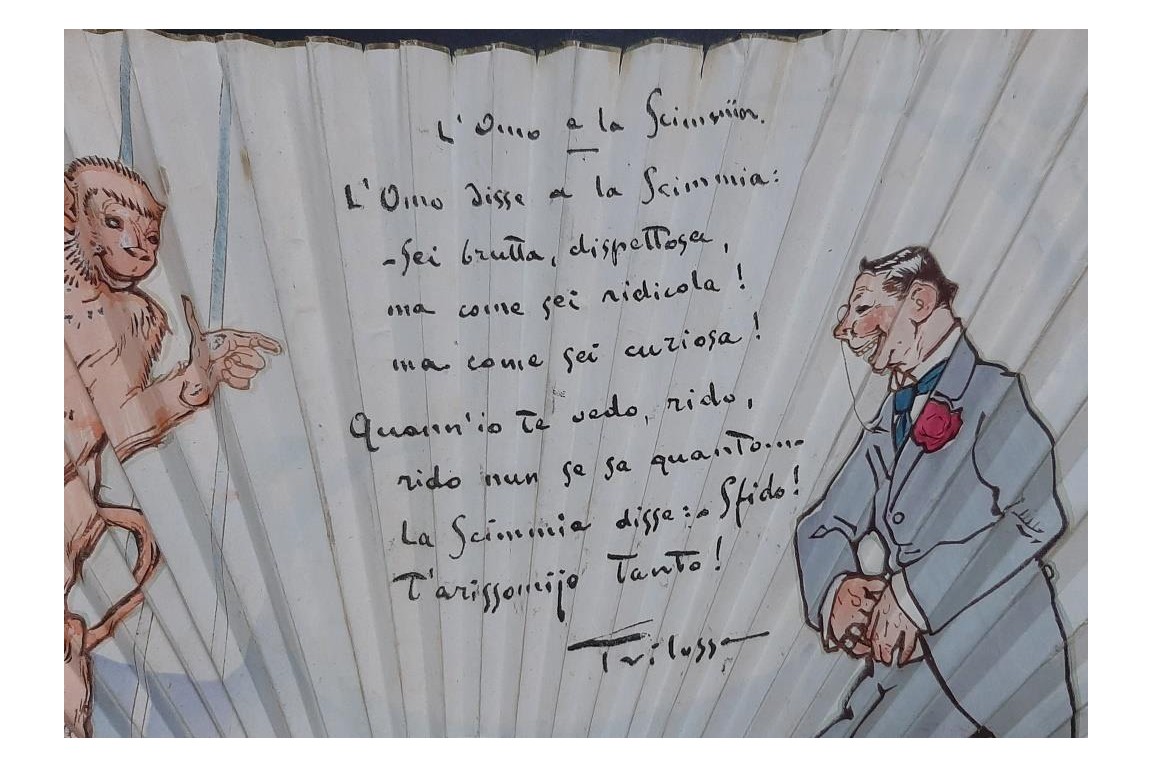 L'Omo e la Scimmia.
L'Omo disse a la Scimmia:
-Sei brutta, dispettosa,
ma come sei ridicola!
ma come sei curiosa!
Quann'io te vedo, rido,
rido nun se sa quanto...
La Scimmia disse:- Sfido!
T'arissomijo tanto!
Trilussa